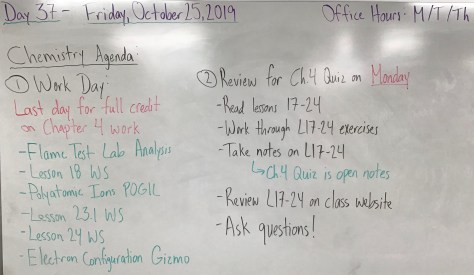 Day 37 - Friday, October 25, 2019
Office Hours: M/T/Th
Chemistry Agenda:
① Work Day:
Last day for full credit
on Chapter 4 work
- Flame Test Lab Analysis
- Lesson 18 WS
- Polyatomic Ions POGIL
- Lesson 23.1 WS
- Lesson 24 WS
- Electron Configuration Gizmo
② Review for Ch.4 Quiz on Monday
- Read lessons 17-24
- Work through L17-24 exercises
- Take notes on L17-24
↳ Ch.4 Quiz is open notes
- Review L17-24 on class website
- Ask questions!